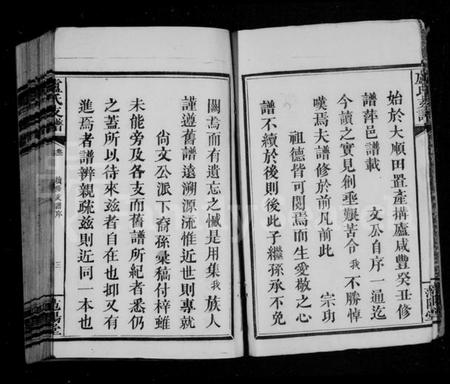 始於大順田置產搆廬咸豐癸丑修
譜萍邑譜載 文公自序一通迄
今讀之實見創垂艱苦令我不勝悼
嘆焉夫譜修於前凡前此 宗功
祖德皆可閱焉而生愛敬之心
譜不續於後則後此子繼孫承不免
闕焉而有遺忘之憾是用集我族人
謹遵舊譜遠溯源流惟近世則專就
尚文公派下裔孫彙稿付梓雖
未能旁及各支而舊譜所紀者悉仍
之蓋所以待來茲者自在也抑又有
進焉者譜辨親疏茲則近同一本也
盧氏支譜
三
范陽堂